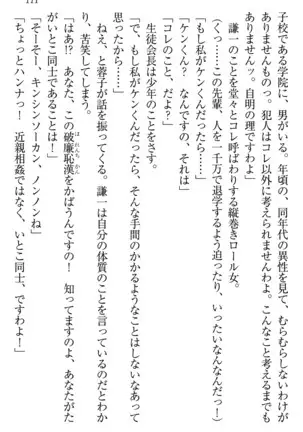 子校である学院に、男がいる。年頃の、同年代の異性を見て、むらむらしないわけが
ありませんものっ。犯人はコレ以外に考えられませんわよ。こんなこと考えるまでも
ありませんッ。自明の理ですわよ」
謙一のことを堂々とコレ呼ばわりする縦巻きロール女。
（くっ……この先輩、人を一千万で退学するよう迫ったり、いったいなんなんだっ！）
「もし私がケンくんだったら……」
「ケンくん？　なんですの、それは」
「コレのこと、だよ？」
生徒会長は少年のことをさし示した。
「で、もし私がケンくんだったら、そんな手間のかかるようなことはしないなあって
思ったから……」
ねえ、と蓉子が話を振ってくる。謙一は自分の体質のことを指しているのだとわか
り、苦笑してしまう。
「はあ!?　あなた、この破廉恥漢をかばうんですの!?　知ってますわよ、あなたがた
がいとこ同士であることは！」
「そーそー、キンシンソーカン、ノンノンね」
「ちょっとハンナっ！　近親相姦ではなく、いとこ同士、ですわよ！」
111